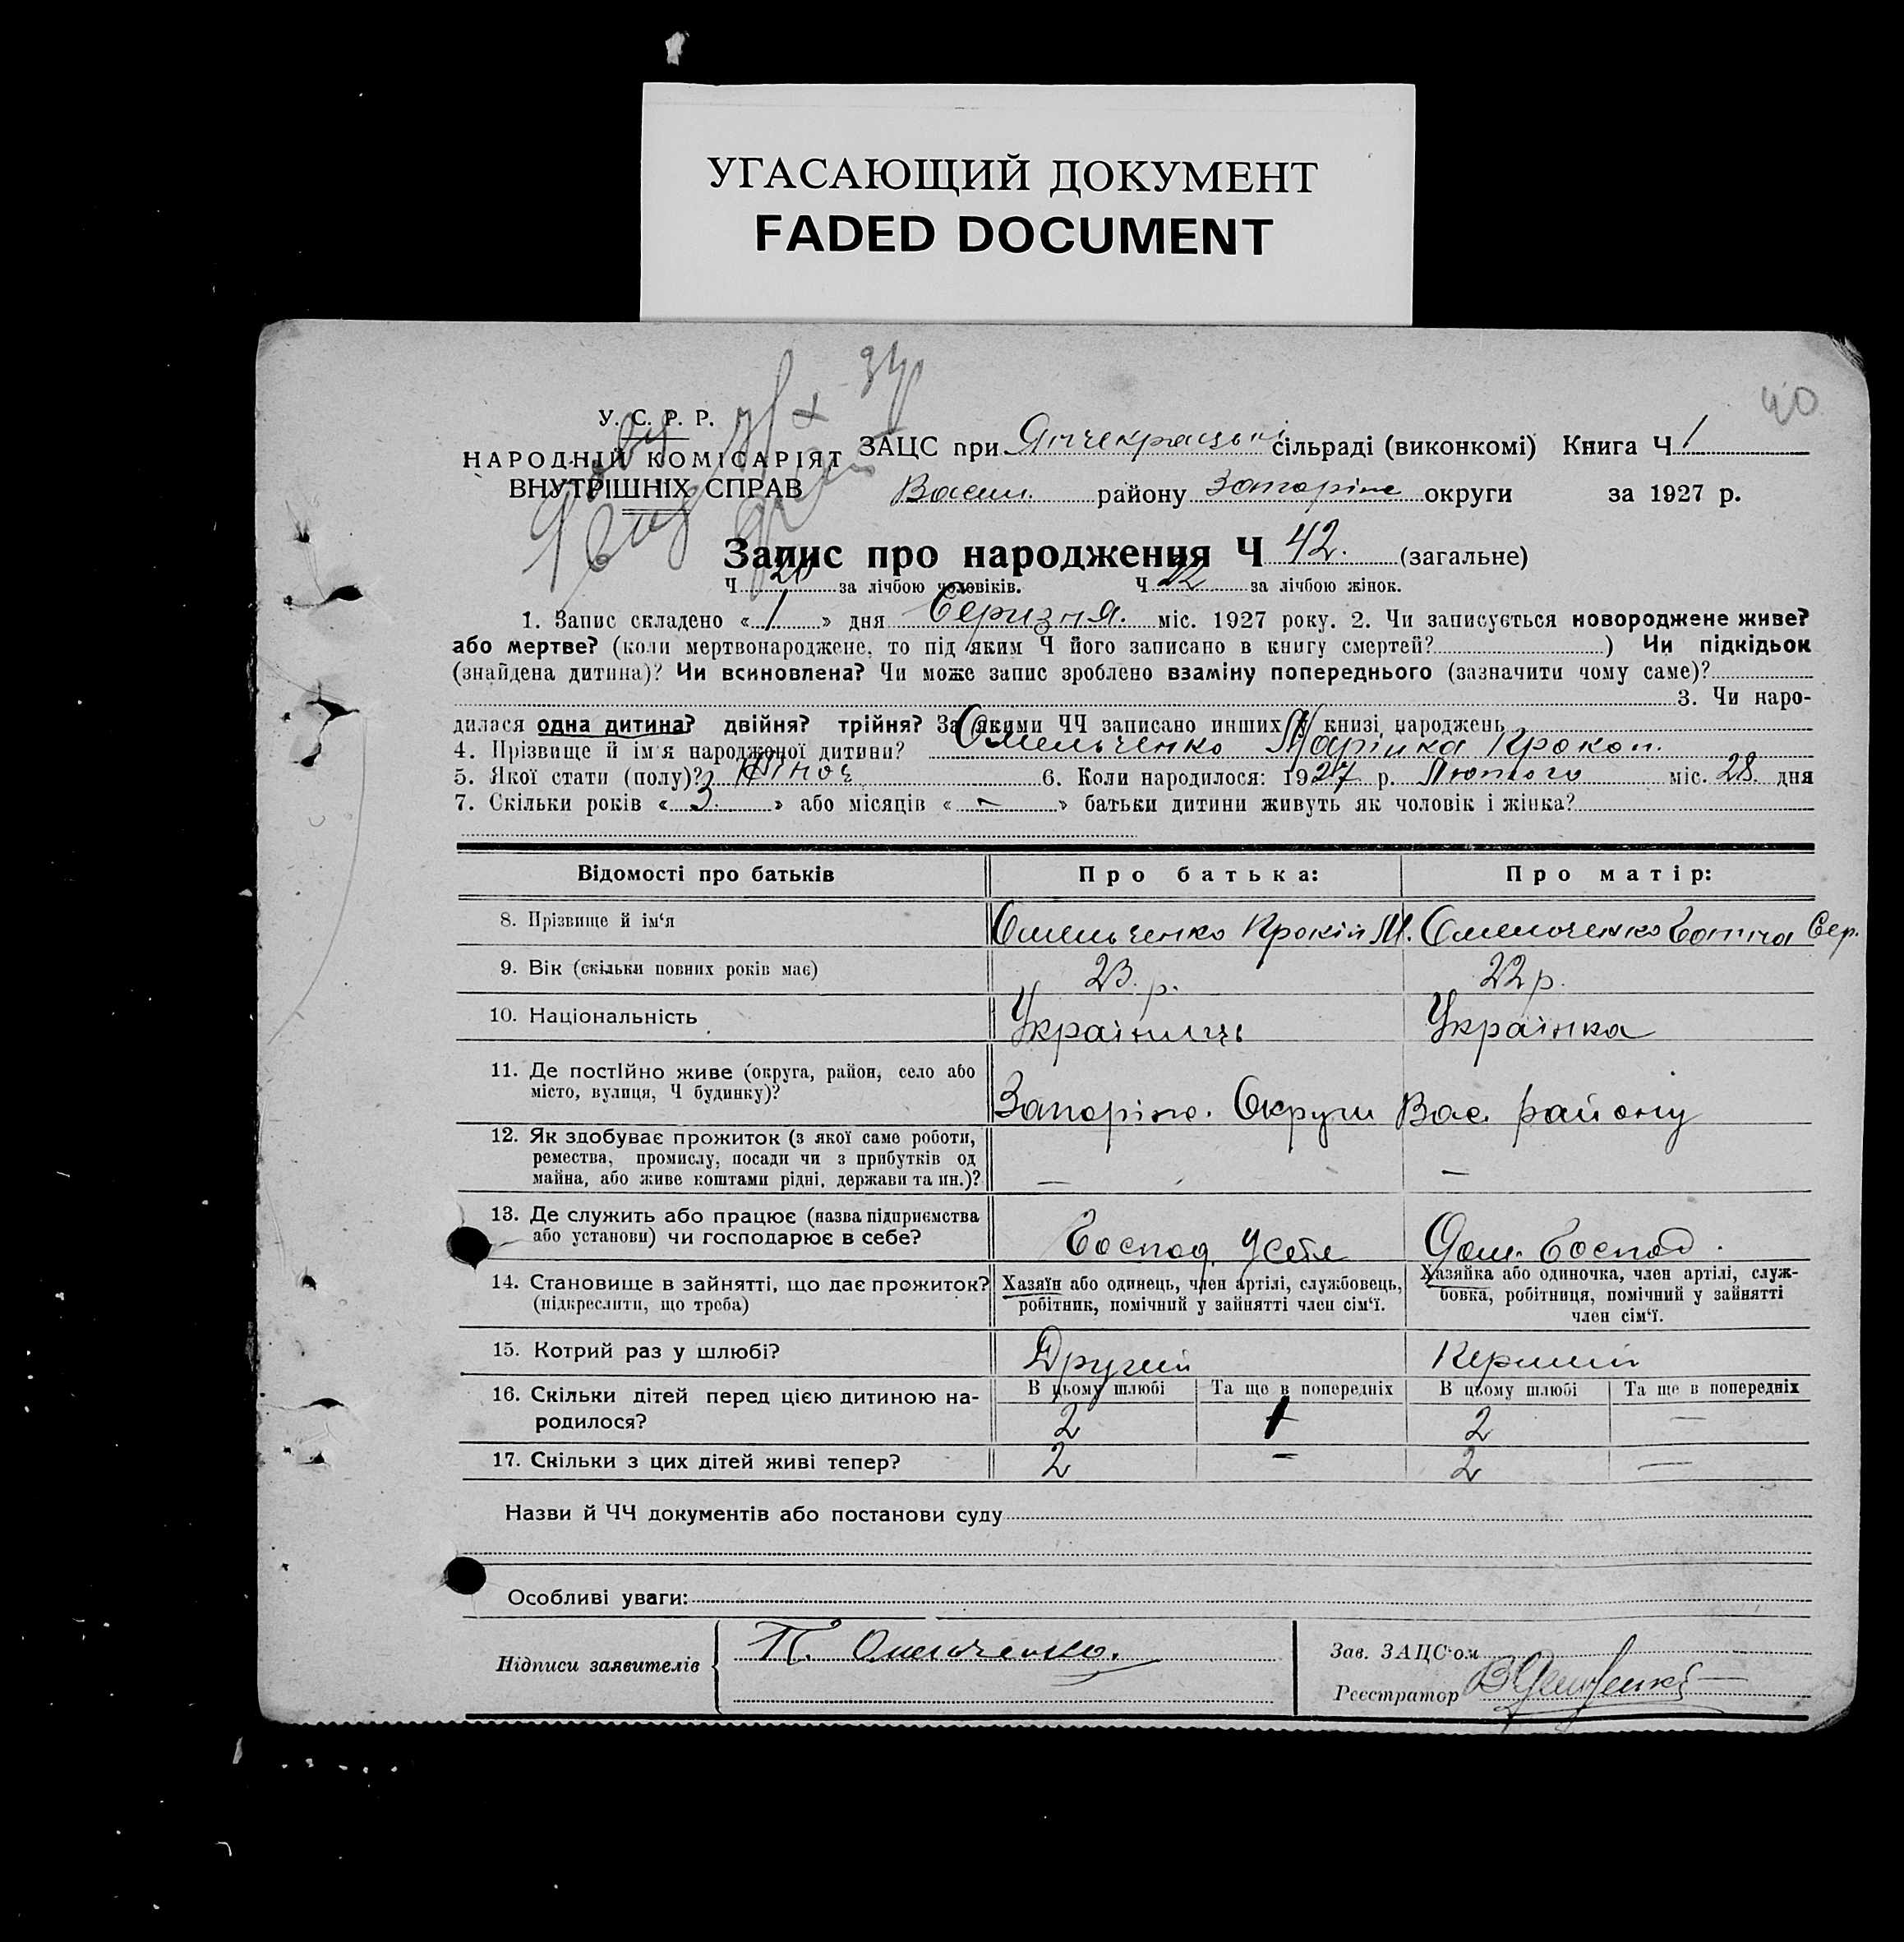 УГАСАЮЩИЙ ДОКУМЕНТ
FADED DOCUMENT
40
У. С. Р. Р.
НАРОДНІЙ КОМІСАРІЯТ
ВНУТРІШНІХ СПРАВ
ЗАЦС при Янчекрацькі сільраді (виконкомі) Книга Ч 1
Васил. району Запоріж округи за 1927 р.
Запис про народження Ч 42. (загальне)
Ч 20 за лічбою чоловіків. Ч 22 за лічбою жінок.
1. Запис складено « 1 » дня Серпзня. міс. 1927 року. 2. Чи записується новороджене живе?
або мертве? (коли мертвонароджене, то під яким Ч його записано в книгу смертей? ) Чи підкідьок
(знайдена дитина)? Чи всиновлена? Чи може запис зроблено взаміну попереднього (зазначити чому саме)?
3. Чи наро-
дилася одна дитина? двійня? трійня? За якими ЧЧ записано инших у книзі народжень
4. Прізвище й ім'я народженої дитини? Омельченко Марійка Прокоп.
5. Якої стати (полу)? Жіноч 6. Коли народилося: 1927 р. Лютого міс. 28. дня
7. Скільки років « 3. » або місяців « — » батьки дитини живуть як чоловік і жінка?
Відомості про батьків Про батька: Про матір:
8. Прізвище й ім‘я Омельченко Прокіп М. Омельченко Сер.
9. Вік (скільки повних років має) 23. р. 22 р.
10. Національність Українець Українка
11. Де постійно живе (округа, район, село або
місто, вулиця, Ч будинку)? Запоріж. Округи Вас. району
12. Як здобуває прожиток (з якої саме роботи,
ремества, промислу, посади чи з прибутків од
майна, або живе коштами рідні, держави та ин.)? — —
13. Де служить або працює (назва підприємства
або установи) чи господарює в себе? Господ. У себя Дом. Господ.
14. Становище в зайнятті, що дає прожиток? Хазяїн або одинець, член артілі, службовець, Хазяйка або одиночка, член артілі, служ-
(підкреслити, що треба) робітник, помічний у зайнятті член сім‘ї. бовка, робітниця, помічний у зайнятті
член сім‘ї.
15. Котрий раз у шлюбі? Другий Перший
16. Скільки дітей перед цією дитиною на- В цьому шлюбі Та ще в попередніх В цьому шлюбі Та ще в попередніх
родилося? 2 2 —
17. Скільки з цих дітей живі тепер? 2 — 2 —
Назви й ЧЧ документів або постанови суду
Особливі уваги:
Підписи заявителів П. Омельченко.
Зав. ЗАЦС·ом
Реєстратор